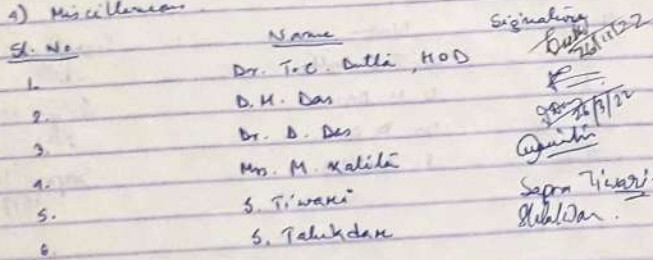 4) Miscellenious
Sl. No. Name Signature
1. Dr. T.C. Dutta, HOD 26/3/22
2. D.M. Das
3. Dr. D. Das 26/3/22
4. Mrs. M. Kalita
5. S. Tiwari Sapna Tiwari
6. S. Talukdar